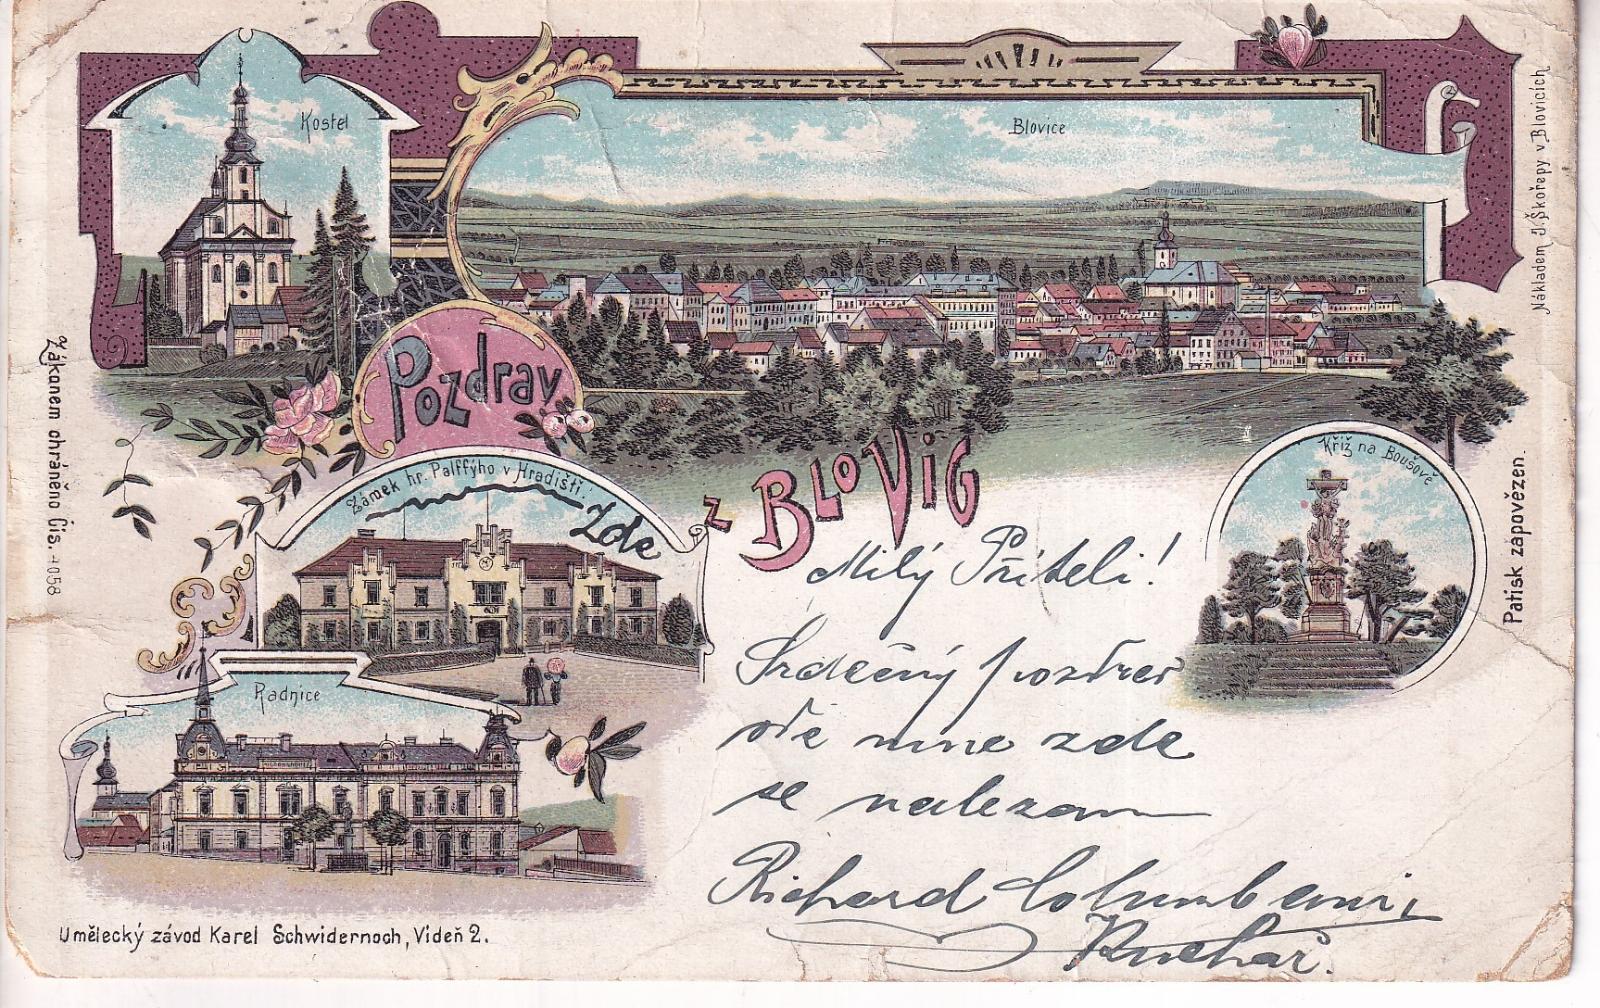 Kostel
Blovice
Pozdrav
z Blovic
Zámek hr. Palffýho v Hradišti.
Zde
Kříž na Boušově
Radnice
Milý Příteli!
Srdečný pozdrav
ode mne zde
se nalezam
Richard
Kuchař.
Umělecký závod Karel Schwidernoch, Vídeň 2.
Zákonem chráněno Čís. 4058
Nákladem J. Škořepy v Blovicích
Patisk zapovězen.